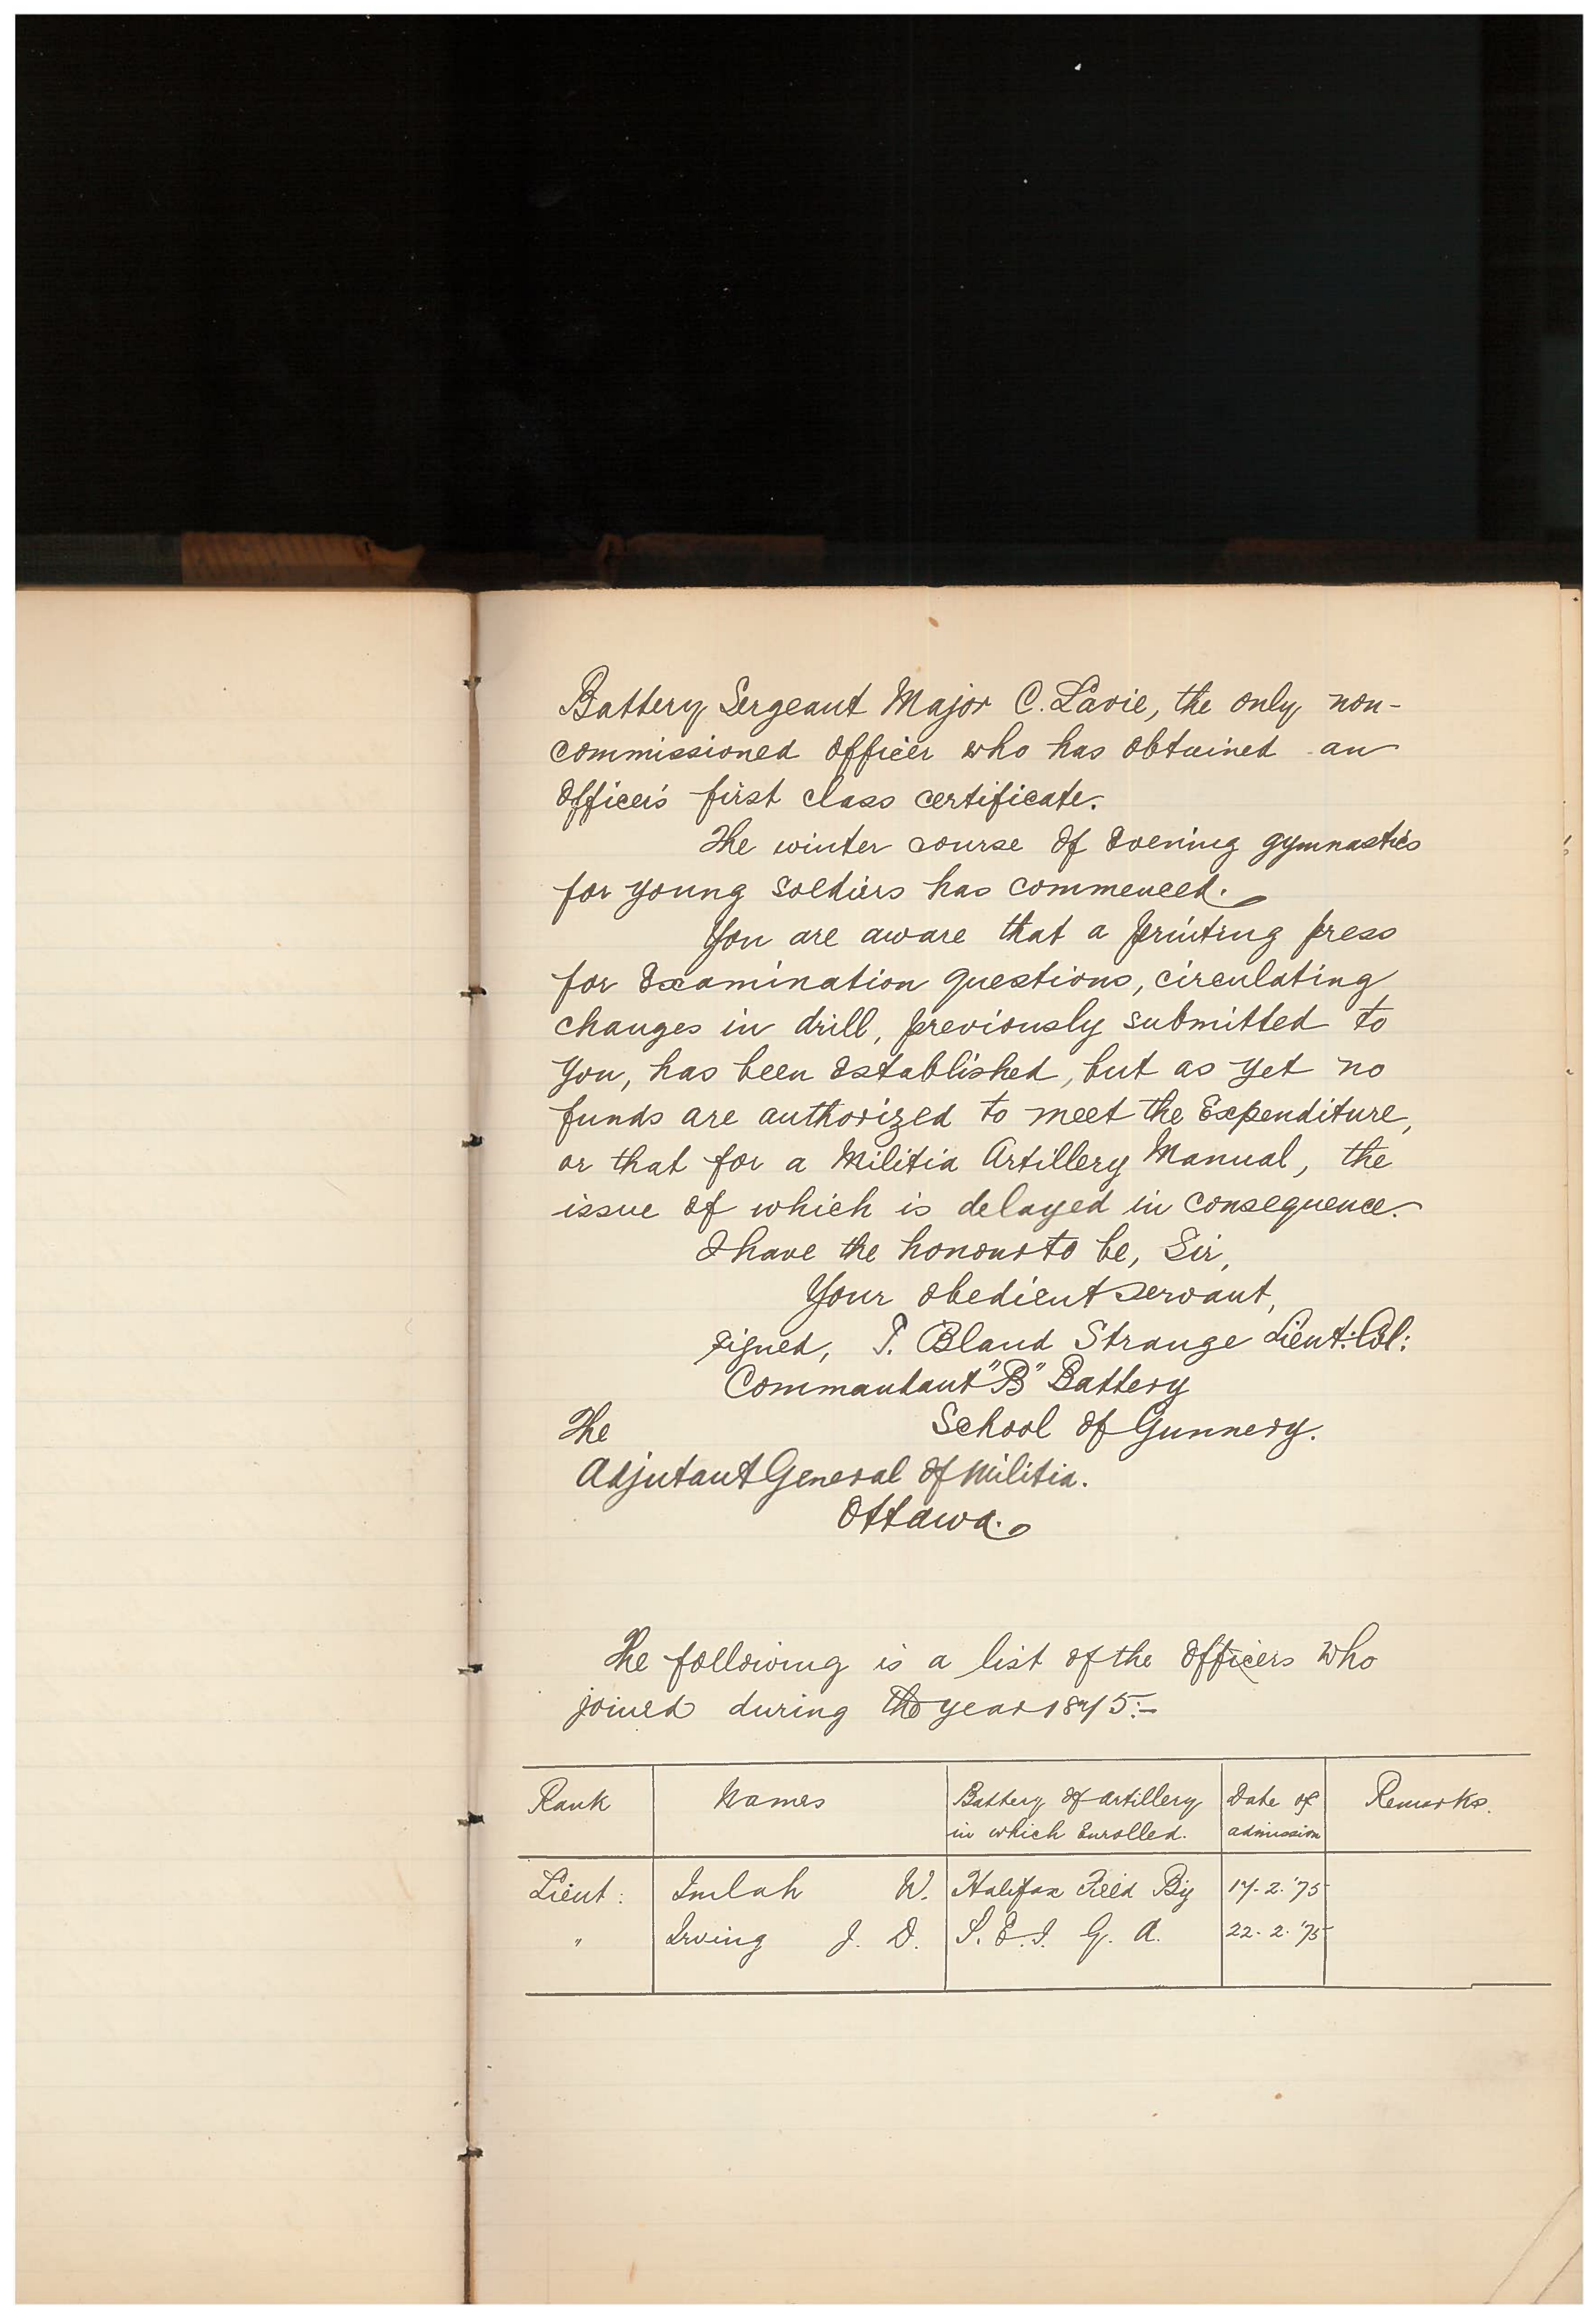 Battery Sergeant Major C. Lavie, the only non-
commissioned officer who has obtained an
Officer's first class certificate.
The winter course of evening gymnastics
for young soldiers has commenced.
You are aware that a printing press
for examination questions, circulating
changes in drill, previously submitted to
you, has been established, but as yet no
funds are authorized to meet the Expenditure,
or that for a Militia Artillery Manual, the
issue of which is delayed in consequence.
I have the honour to be, Sir,
Your obedient servant,
signed, T. Bland Strange Lieut: Col:
Commandant "B" Battery
The School of Gunnery.
Adjutant General of Militia.
Ottawa.
The following is a list of the officers who
joined during the year 1875:-
Rank Names Battery of artillery Date of Remarks.
in which Enrolled. admission
Lieut: Imlah W. Halifax Field By 17. 2. '75
" Irving J. D. P. E. I. G. A. 22. 2. '75